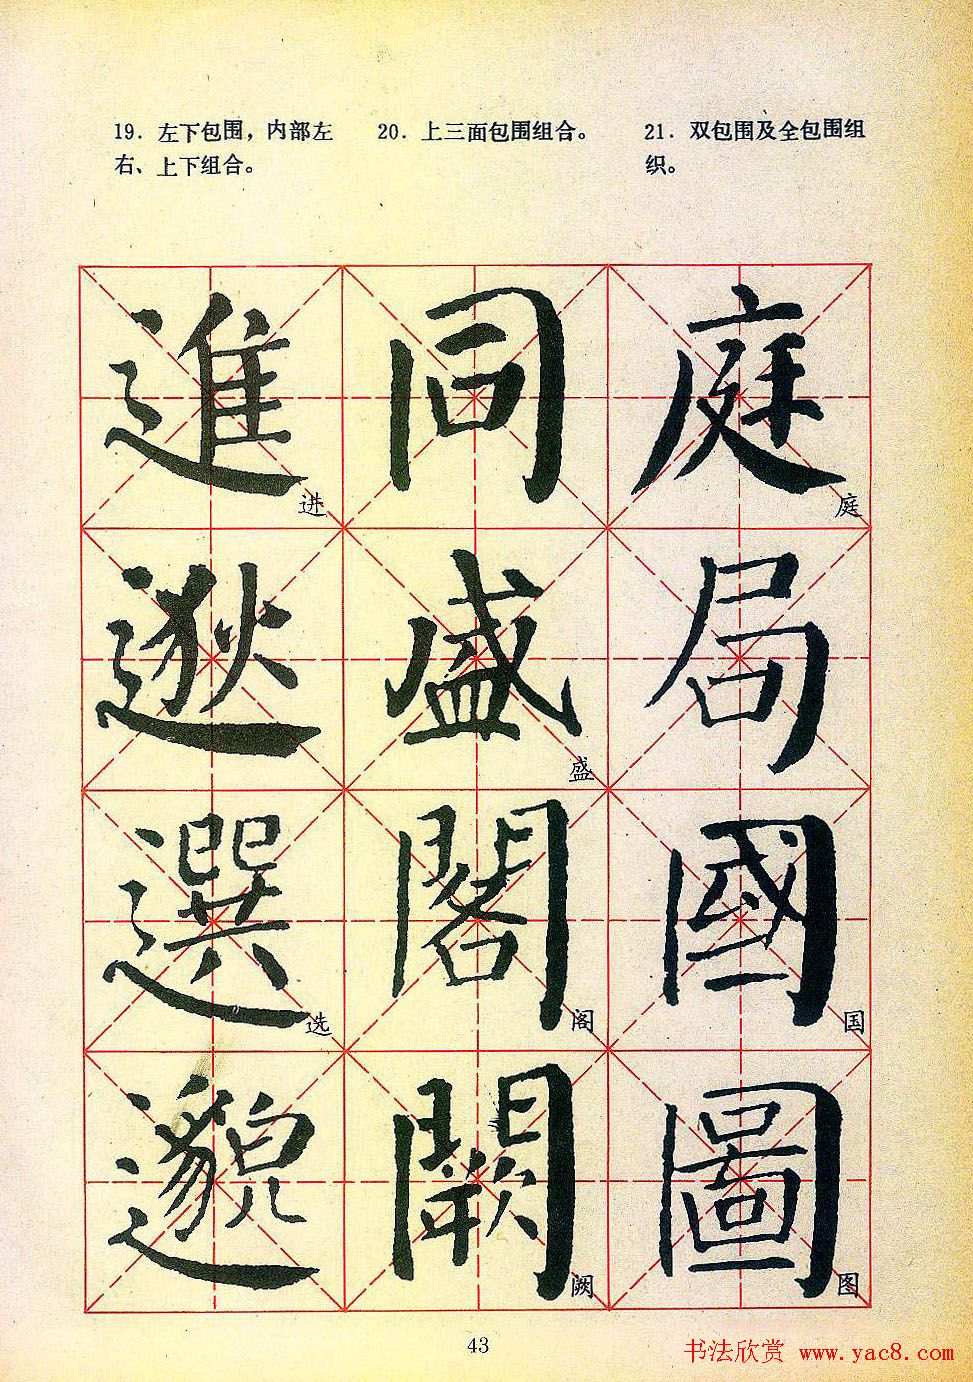 19. 左下包围，内部左
右、上下组合。
20. 上三面包围组合。
21. 双包围及全包围组
织。
進 同 庭
进 庭
逖 盛 局
盛
選 閣 國
选 阁 国
邈 闕 圖
阙 图
43
书法欣赏 www.yac8.com